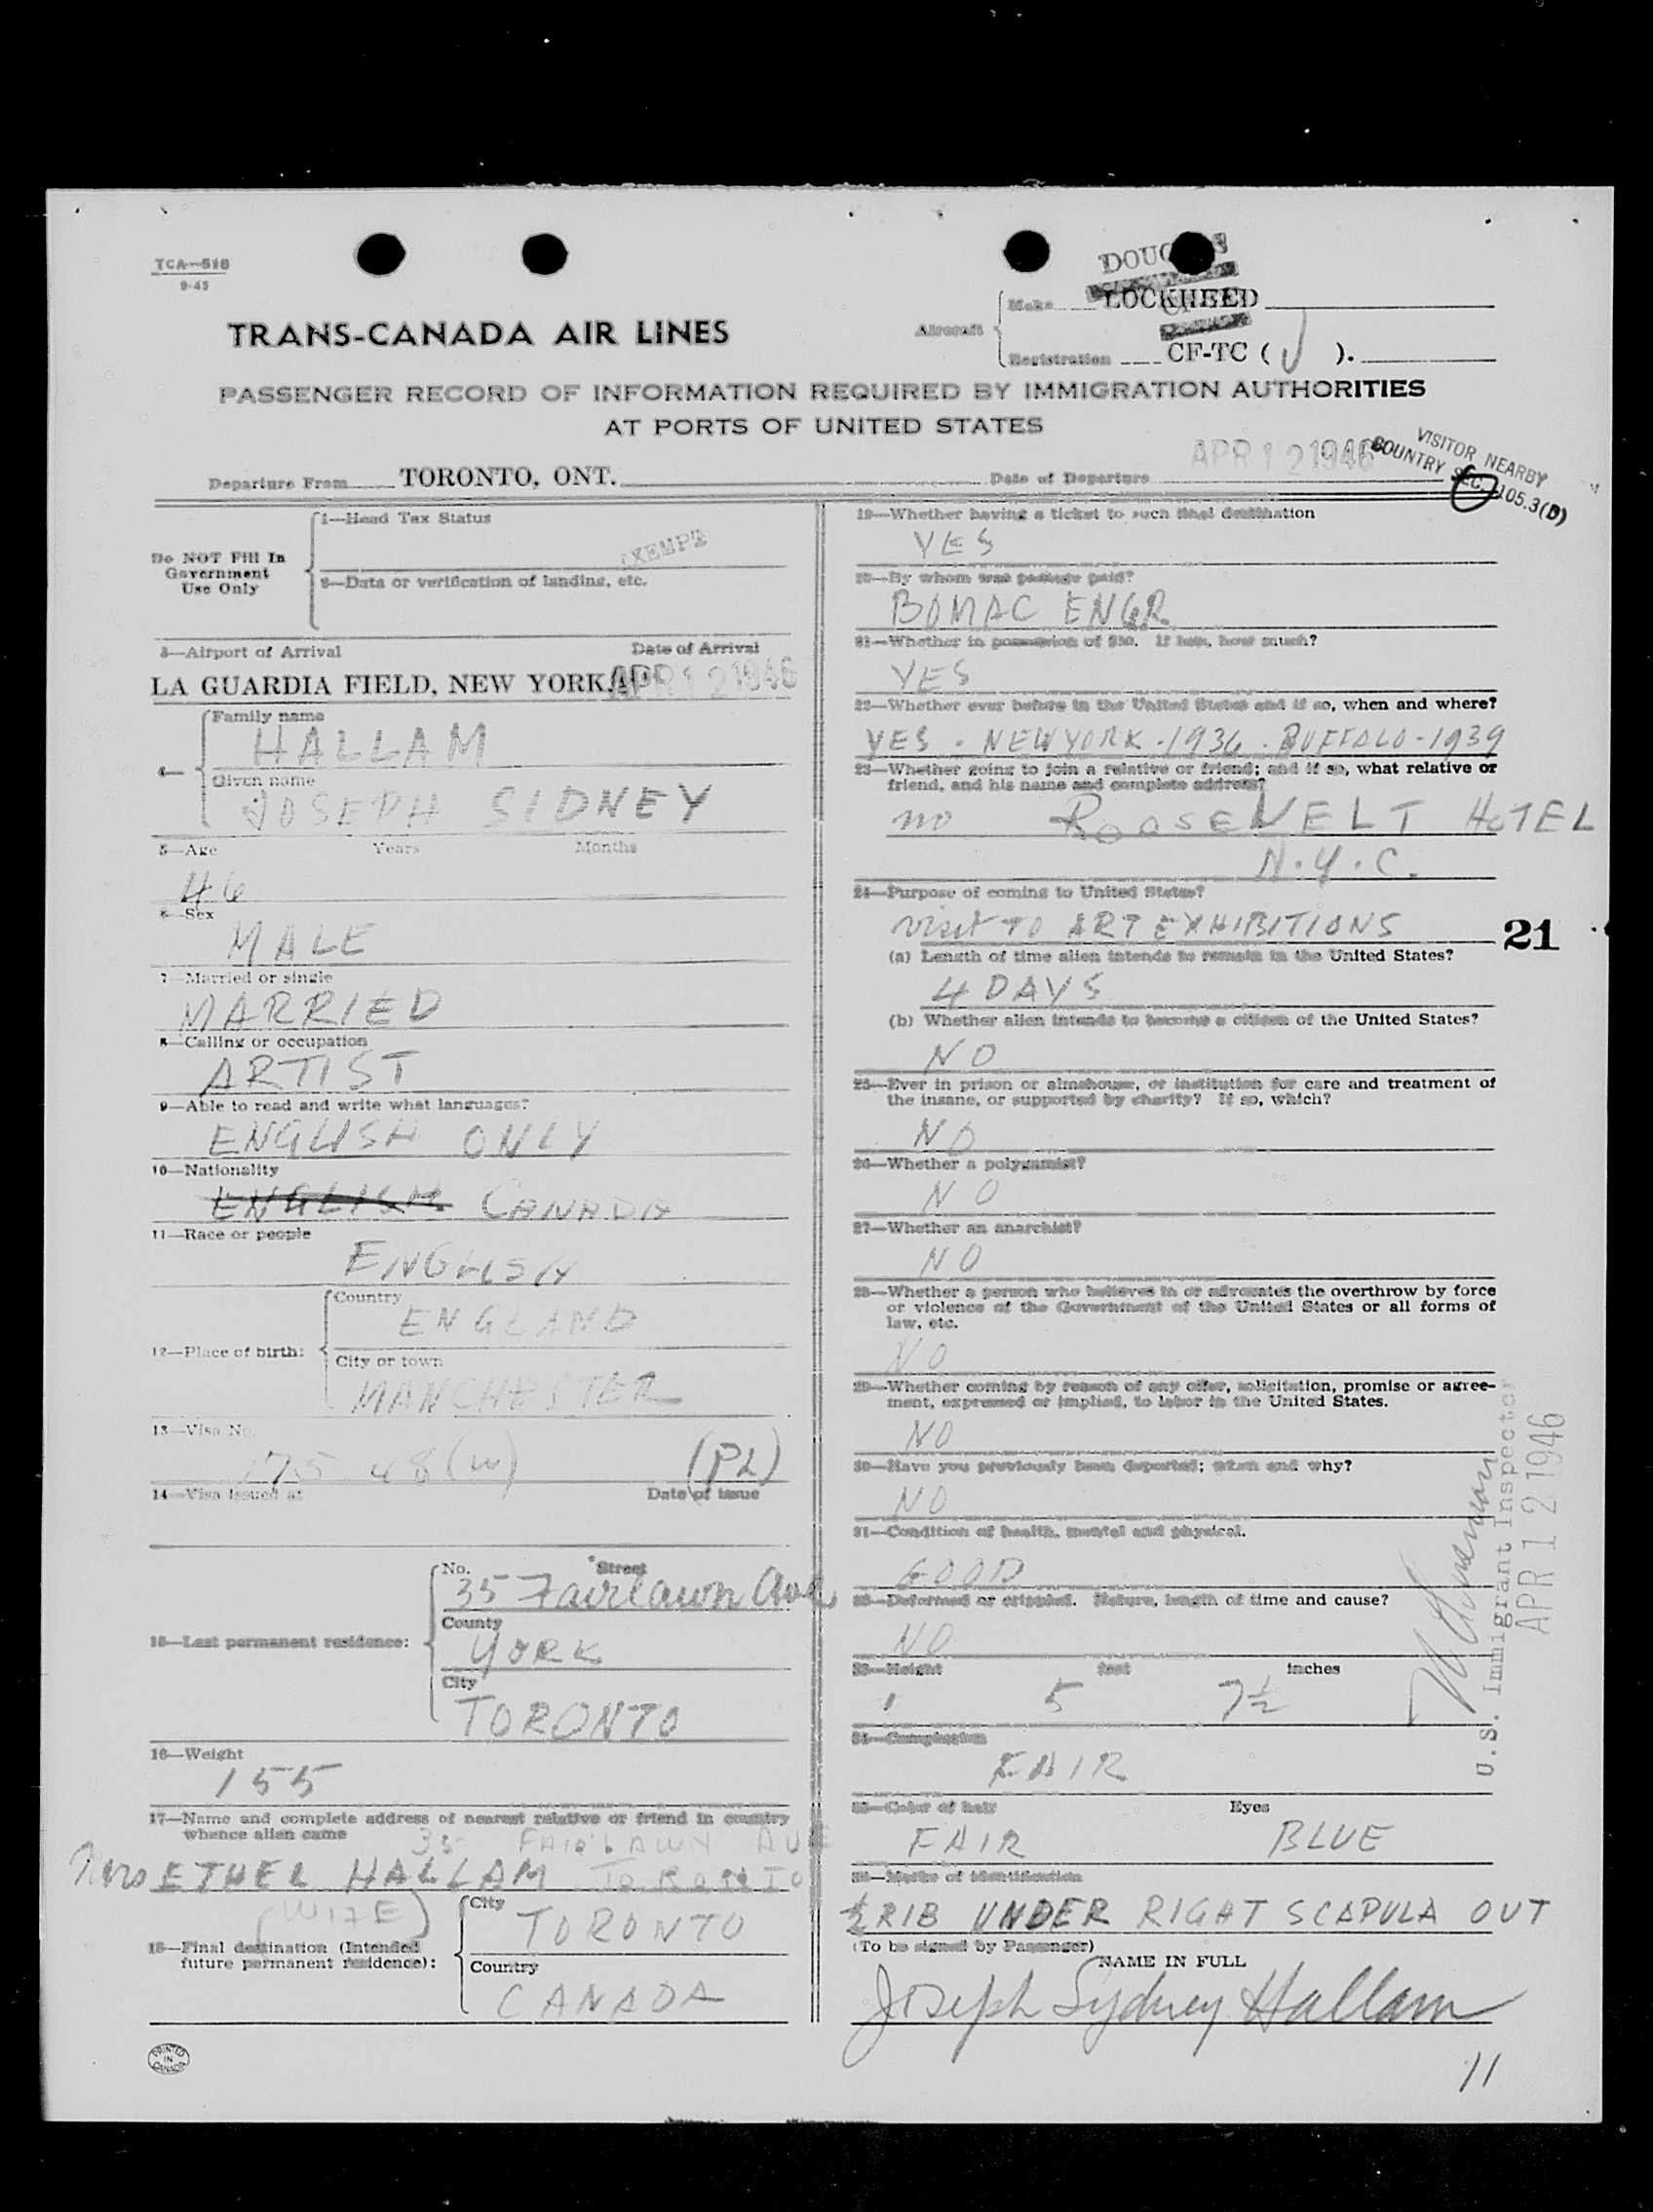 TCA—518
9-45
DOUGLAS
Make LOCKHEED
TRANS-CANADA AIR LINES
Aircraft
Registration CF-TC ( J ).
PASSENGER RECORD OF INFORMATION REQUIRED BY IMMIGRATION AUTHORITIES
AT PORTS OF UNITED STATES
VISITOR NEARBY
COUNTRY SEC. 105.3(B)
Departure From TORONTO, ONT. Date of Departure APR 12 1946
Do NOT Fill In
Government
Use Only
1—Head Tax Status
EXEMPT
2—Data or verification of landing, etc.
3—Airport of Arrival Date of Arrival
LA GUARDIA FIELD, NEW YORK. APR 12 1946
4—
Family name
HALLAM
Given name
JOSEPH SIDNEY
5—Age Years Months
46
6—Sex
MALE
7—Married or single
MARRIED
8—Calling or occupation
ARTIST
9—Able to read and write what languages?
ENGLISH ONLY
10—Nationality
ENGLISH CANADA
11—Race or people
ENGLISH
12—Place of birth:
Country
ENGLAND
City or town
MANCHESTER
13—Visa No.
175 48 (W) (PL)
14—Visa issued at Date of issue
15—Last permanent residence:
No. Street
35 Fairlawn Ave
County
YORK
City
TORONTO
16—Weight
155
17—Name and complete address of nearest relative or friend in country
whence alien came
35 FAIRLAWN AVE
Mrs ETHEL HALLAM TORONTO
(WIFE)
18—Final destination (Intended
future permanent residence):
City
TORONTO
Country
CANADA
PRINTED
IN
CANADA
19—Whether having a ticket to such final destination
YES
20—By whom was passage paid?
BOMAC ENGR.
21—Whether in possession of $50. If less, how much?
YES
22—Whether ever before in the United States and if so, when and where?
YES - NEW YORK - 1936 - BUFFALO - 1939
23—Whether going to join a relative or friend; and if so, what relative or
friend, and his name and complete address?
no ROOSEVELT HOTEL
N.Y.C.
24—Purpose of coming to United States?
visit TO ART EXHIBITIONS
21
(a) Length of time alien intends to remain in the United States?
4 DAYS
(b) Whether alien intends to become a citizen of the United States?
NO
25—Ever in prison or almshouse, or institution for care and treatment of
the insane, or supported by charity? If so, which?
NO
26—Whether a polygamist?
NO
27—Whether an anarchist?
NO
28—Whether a person who believes in or advocates the overthrow by force
or violence of the Government of the United States or all forms of
law, etc.
NO
29—Whether coming by reason of any offer, solicitation, promise or agree-
ment, expressed or implied, to labor in the United States.
NO
30—Have you previously been deported; when and why?
NO
31—Condition of health, mental and physical.
GOOD
32—Deformed or crippled. Nature, length of time and cause?
NO
33—Height feet inches
5 7½
34—Complexion
FAIR
35—Color of hair Eyes
FAIR BLUE
36—Marks of identification
½ RIB UNDER RIGHT SCAPULA OUT
(To be signed by Passenger)
NAME IN FULL
Joseph Sydney Hallam
11
U.S. Immigrant Inspector
APR 12 1946